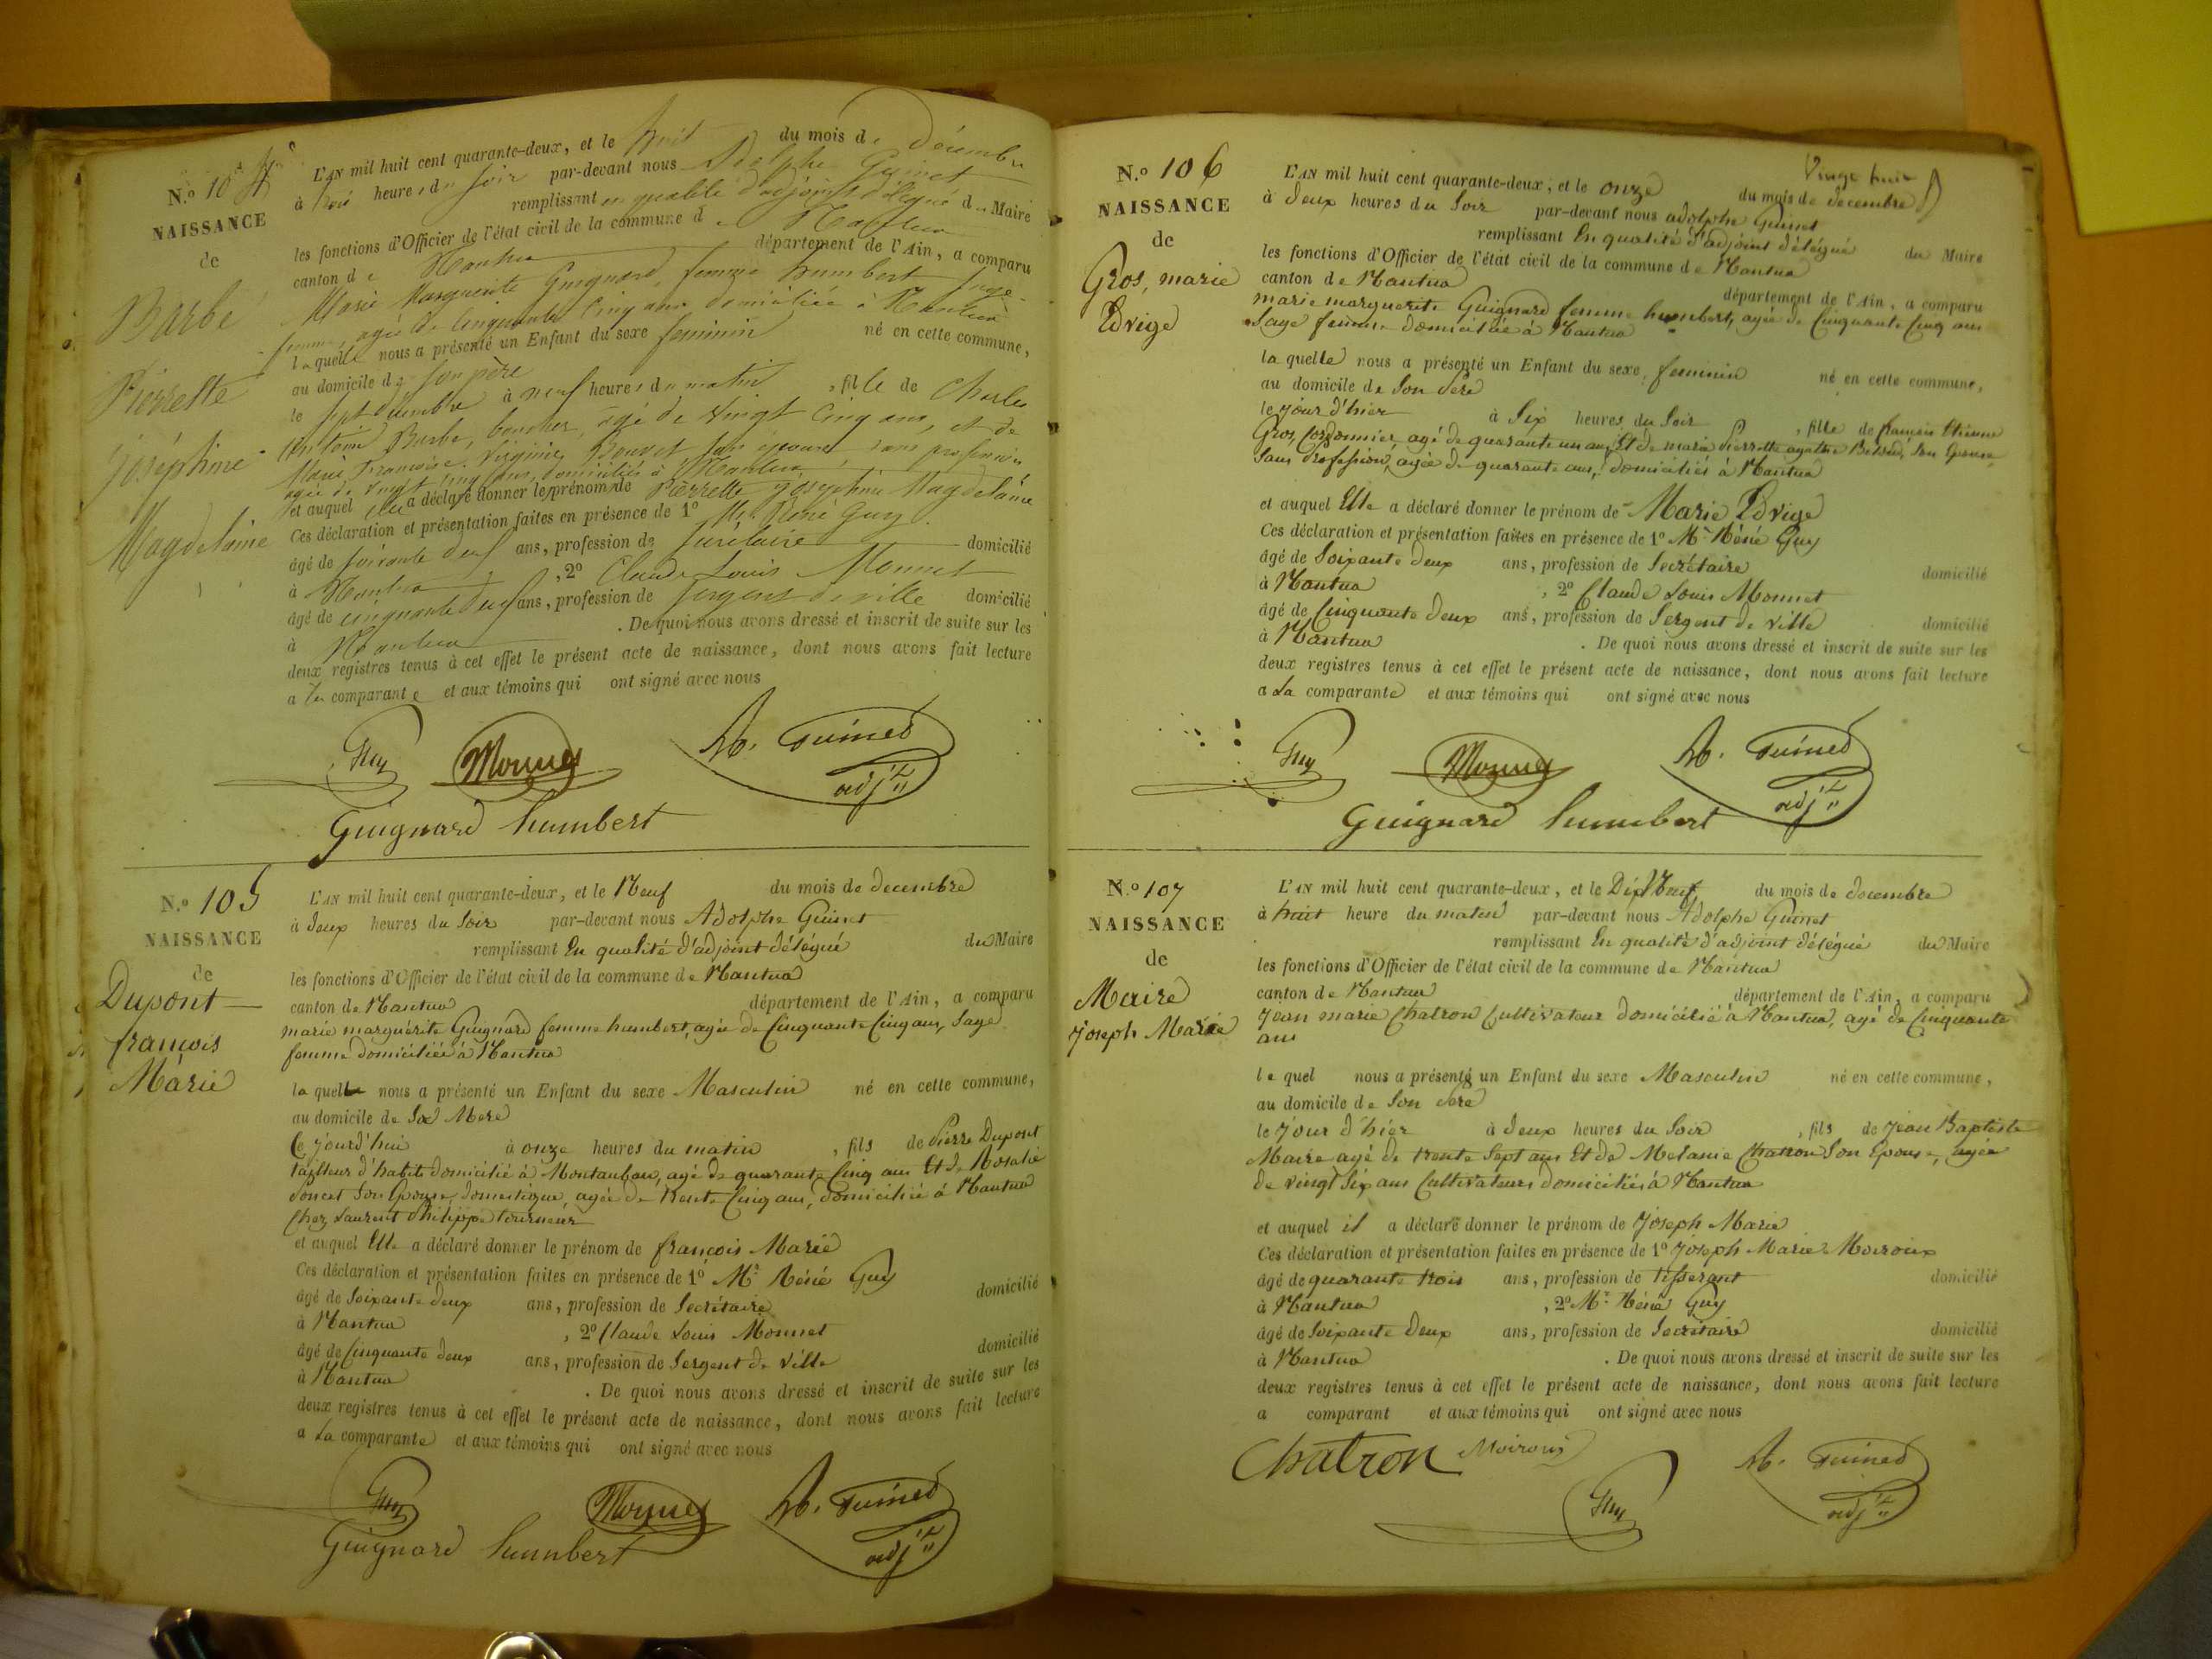 N.º 104
NAISSANCE
de
Barbé
Pierrette
joséphine
Magdelaine
L'AN mil huit cent quarante-deux, et le huit du mois de Décembre
à trois heures du soir par-devant nous Adolphe Guinet
remplissant en qualité d'adjoint délégué du Maire
les fonctions d'Officier de l'état civil de la commune de Nantua
canton de Nantua département de l'Ain, a comparu
Marie Marguerite Guignard, femme humbert sage-
femme, agée de cinquante cinq ans domiciliée à Nantua
laquelle nous a présenté un Enfant du sexe feminin né en cette commune,
au domicile de son père
le sept décembre à neuf heures du matin, fille de Charles
Antoine Barbe, boucher, agé de vingt cinq ans, et de
Marie Françoise Virginie Bouvet son épouse sans profession
agée de vingt cinq ans, domiciliés à Nantua
et auquel elle a déclaré donner le prénom de Pierrette josephine Magdelaine
Ces déclaration et présentation faites en présence de 1º Mr. René Guy
âgé de soixante deux ans, profession de secrétaire domicilié
à Nantua, 2º Claude Louis Monnet
âgé de cinquante deux ans, profession de sergent de ville domicilié
à Nantua. De quoi nous avons dressé et inscrit de suite sur les
deux registres tenus à cet effet le présent acte de naissance, dont nous avons fait lecture
a la comparante et aux témoins qui ont signé avec nous
Guy Monnet A. Guinet adjt
Guignard humbert
N.º 105
NAISSANCE
de
Dupont
françois
Marie
L'AN mil huit cent quarante-deux, et le Neuf du mois de decembre
à deux heures du Soir par-devant nous Adolphe Guinet
remplissant En qualité d'adjoint délégué du Maire
les fonctions d'Officier de l'état civil de la commune de Nantua
canton de Nantua département de l'Ain, a comparu
marie marguerite Guignard femme humbert, agée de Cinquante Cinq ans, Sage
femme domiciliée à Nantua
laquelle nous a présenté un Enfant du sexe Masculin né en cette commune,
au domicile de Sa Mere
Ce jourd'hui à onze heures du matin, fils de Pierre Dupont
tailleur d'habits domicilié à Montauban, agé de quarante Cinq ans Et de Rosalie
doncet Son Epouse, domestique, agée de trente Cinq ans, domiciliée à Nantua
Chez Laurent Philippe tourneur
et auquel Elle a déclaré donner le prénom de françois Marie
Ces déclaration et présentation faites en présence de 1º Mr. Réné Guy
âgé de Soixante deux ans, profession de Secrétaire domicilié
à Nantua, 2º Claude Louis Monnet
âgé de Cinquante deux ans, profession de Sergent de Ville domicilié
à Nantua. De quoi nous avons dressé et inscrit de suite sur les
deux registres tenus à cet effet le présent acte de naissance, dont nous avons fait lecture
a La comparante et aux témoins qui ont signé avec nous
Guy Monnet A. Guinet adjt
Guignard humbert
N.º 106
NAISSANCE
de
Gros, marie
Edvige
Vingt huit
L'AN mil huit cent quarante-deux, et le onze du mois de decembre
à deux heures du Soir par-devant nous adolphe Guinet
remplissant En qualité d'adjoint délégué du Maire
les fonctions d'Officier de l'état civil de la commune de Nantua
canton de Nantua département de l'Ain, a comparu
marie marguerite Guignard femme humbert, agée de Cinquante Cinq ans
Sage femme domiciliée à Nantua
laquelle nous a présenté un Enfant du sexe feminin né en cette commune,
au domicile de Son Pere
le jour d'hier à Six heures du Soir, fille de françois Etienne
Gros, Cordonnier, agé de quarante un ans, Et de marie Pierrette agathe Son Epouse,
Sans Profession, agée de quarante ans, domiciliés à Nantua
et auquel Elle a déclaré donner le prénom de Marie Edvige
Ces déclaration et présentation faites en présence de 1º Mr. Réné Guy
âgé de Soixante deux ans, profession de Secrétaire domicilié
à Nantua, 2º Claude Louis Monnet
âgé de Cinquante deux ans, profession de Sergent de Ville domicilié
à Nantua. De quoi nous avons dressé et inscrit de suite sur les
deux registres tenus à cet effet le présent acte de naissance, dont nous avons fait lecture
a La comparante et aux témoins qui ont signé avec nous
Guy Monnet A. Guinet adjt
Guignard humbert
N.º 107
NAISSANCE
de
Maire
joseph Marie
L'AN mil huit cent quarante-deux, et le Dix Neuf du mois de decembre
à huit heure du matin par-devant nous Adolphe Guinet
remplissant En qualité d'adjoint délégué du Maire
les fonctions d'Officier de l'état civil de la commune de Nantua
canton de Nantua département de l'Ain, a comparu
Jean marie Chatron Cultivateur domicilié à Nantua, agé de Cinquante
ans
lequel nous a présenté un Enfant du sexe Masculin né en cette commune,
au domicile de Son Pere
le jour d'hier à deux heures du Soir, fils de jean Baptiste
Maire agé de trente Sept ans Et de Melanie Chatron Son Epouse, agée
de vingt Six ans Cultivateurs domiciliés à Nantua
et auquel il a déclaré donner le prénom de joseph Marie
Ces déclaration et présentation faites en présence de 1º joseph Marie Moiroux
âgé de quarante trois ans, profession de tisserant domicilié
à Nantua, 2º Mr. Réné Guy
âgé de Soixante deux ans, profession de Secrétaire domicilié
à Nantua. De quoi nous avons dressé et inscrit de suite sur les
deux registres tenus à cet effet le présent acte de naissance, dont nous avons fait lecture
a comparant et aux témoins qui ont signé avec nous
Chatron Moiroux
Guy A. Guinet adjt